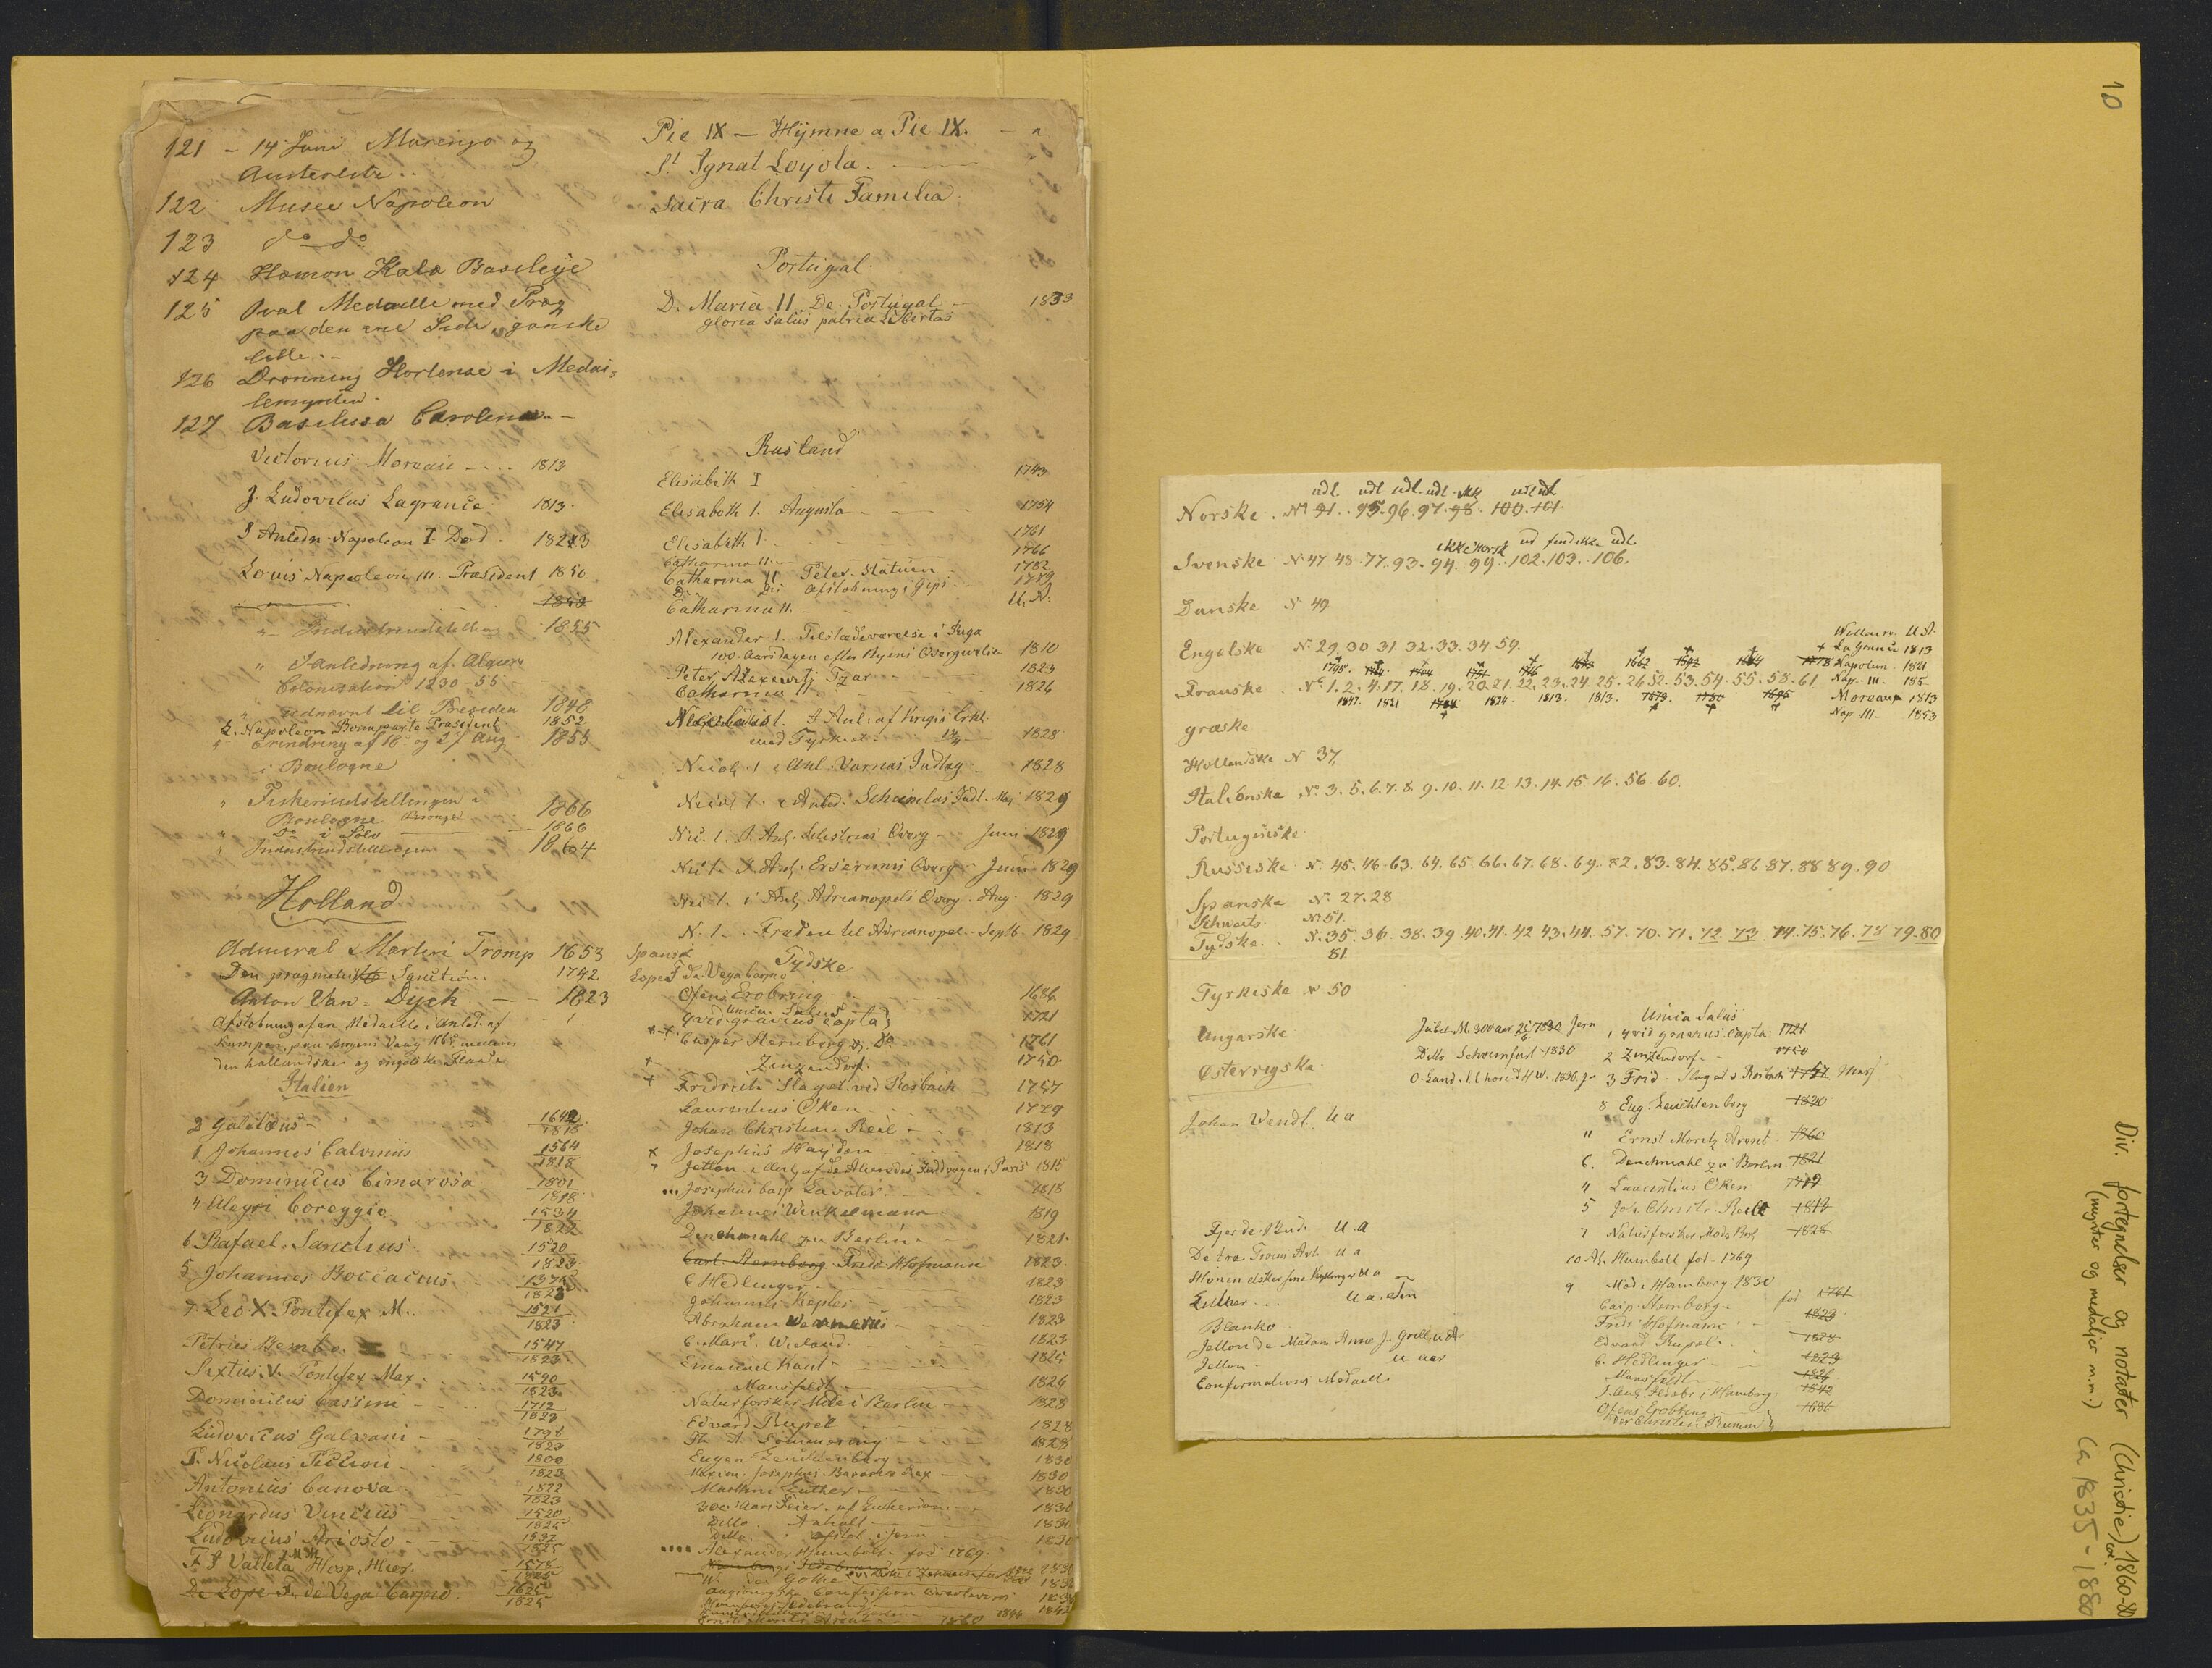 121 - 14 Juni Marengo og
Austerlitz..
122 Musee Napoleon
123 do do
124 Hæmon Kala Basileije
125 Oval Medaille med Præg
paa den ene Side, ganske
lille.-
126 Dronning Hortense i Medai=
lemynten.
127 Basilissa Carolina -
Victorius Moreau .... 1813
J. Ludovicus Lagrance 1813.
I Anledn. Napoleon I Død. 1821
Louis Napoleon III. Præsident 1850
1853
" Industriudstilling 1855
" I Anledning af Algiers
Colonisation 1830-55
" udnævnt til Presiden 1848
L. Napoleon Bonaparte Præsident 1852
" Erindring af 18 og 27 Aug 1855
i Boulogne
" Fiskeriudstillingen i
Boulogne Bronze 1866
" Do i Sølv 1866
" Industriudstillingen 1864
Holland
Admiral Marten Tromp 1653
Den pragmatiske Sanction. 1742
Anton Van-Dyck - - 1823
Afstøbning af en Medaille i Anled. af
Kampen paa Bergens Vaag 1665 mellem
den hollandske og engelske Flaade
Italien
2 Galilæus - 1642 1818
1 Johannes Calvinus 1564 1818
3 Dominicus Cimarosa 1801 1818
4 Alegri Coreggio 1534 1822
6 Rafael. Sanctius 1520 1823
5 Johannes Boccacius 1375 1823
7 Leo X. Pontifex M.. 1521 1823
Petrus Bembo 1547 1823
Sixtus. V. Pontifex Max. 1590 1823
Dominicus Cassini - 1712 1823
Ludovicus Galvani - 1798 1823
P. Nicolaus Piccini 1800 1823
Antonius Canova 1822 1823
Leonardus Vincius 1520 1825
Ludovicus Ariosto 1532 1825
F. P. Valleta M. M. Hosp. Hier. 1578 1825
De Lope F. de Vega Carpio 1635 1825
Pie IX - Hÿmne a Pie IX.
St Ignat Loyola.
Sacra Christi Familia
Portugal.
D. Maria II. De. Portugal 1833
gloria salus patria Libertas
Rusland
Elisabeth I 1743
Elisabeth I. Augusta 1754
Elisabeth I. 1761
Catharina II. 1766
Catharina II Peter. Statuen 1782
Do Do Afstøbning i Gips 1789
Catharina II. U. A.
Alexander I. Tilstædeværelse i Riga
100 Aarsdagen efter Byens Overgivelse 1810
Peter Alexewitj Tzar 1823
Catharina II 1826
Nicolaus I. I Anl. af Krigs Erkl.
mod Tyrkiet 1828
Nicol. I i Anl. Varnas Indtag. 1828
Nicol I. i Anled. Schumlas Indt. Maj 1829
Nic. I. I. Anl. Silistrias Overg Juni 1829
Nic I. I Anl. Erserums Overg Juni 1829
Nic I. i Anl. Adrianopels Overg. Aug. 1829
N. I. Freden til Adrianopel. Septb. 1829
Spansk
Lope F de Vega Carpio
Tydske
Ofens Erobring 1686
Unica Salus
Qvid gravius capta 1721
Casper Sternberg 1761
Zinzendorf. 1740
Fridrich Slaget ved Rosbach 1757
Laurentius Oken 1779
Johan Christian Reil 1813
Josephus Haydn 1818
Jetton i Anl. af de Alieredes Inddragen i Paris 1815
Josephus Casp Lavater 1818
Johannes Winkelmann 1819
Denchmahl zu Berlin 1821
Carl. Sternberg Fridr Hofmann 1823
C Hedlinger 1823
Johannes Kepler 1823
Abraham Wernerus 1823
C. Mart. Wieland. 1823
Emanuel Kant 1825
Mansfeldt 1826
Naturforsker Møde i Berlin 1828
Edvard Rupel 1828
Th. S. Sömmering 1828
Eugen Leuchtenberg 1830
Maxim. Josephus. Bavariæ Rex 1830
Marthin Luther 1830
300 Aars Feier af Lutherdom. 1830
Ditto Anhalt 1830
Ditto afstøb. i Jern 1830
Alexander Humboldt fød 1769.
W. von Göthe
Augsburgske Confession overleveret
Ernst Moritz Arndt 1860
Norske. No 91. 95. 96. 97. 98. 100. 101.
udl. udl udl. udl ikk udl udl
ikke norsk ud find ikke udl.
Svenske No 47 48. 77. 93. 94. 99. 102. 103. 106.
Danske No 49
Engelske No. 29. 30 31. 32. 33. 34. 59.
Franske. No. 1. 2. 4. 17. 18. 19. 20. 21. 22. 23. 24. 25. 26. 52. 53. 54. 55. 58. 61
1847. 1821 1824. 1813. 1813.
La Grance 1813
Napoleon. 1821
Nap. III. 185-
Moreaux 1813
Nap. III. 1853
græske
Hollandske No 37.
Italienske No. 3. 5. 6. 7. 8. 9. 10. 11. 12. 13. 14. 15. 16. 56. 60.
Portugiiske
Russiske No. 45. 46. 63. 64. 65. 66. 67. 68. 69. 82. 83. 84. 85. 86 87. 88 89. 90
Spanske No. 27. 28
Schweits No 51.
Tydske. No. 35. 36. 38. 39 40. 41. 42 43. 44. 57. 70. 71. 72 73 74. 75. 76. 78 79. 80
81
Tyrkiske No 50
Ungarske
Østerrigske
Jubel. M. 300 aar 25/6 1830 Jern
Ditto Schweinfurt 1830
Unica Salus
1 qvid gravius capta. 1721
2 Zinzendorf 1740
3 Frid. Slaget v Rosbach 1757 Mess
8 Eug. Leuchtenberg 1830
" Ernst Moritz Arndt 1860
6. Denchmahl zu Berlin 1821
4 Laurentius Oken 1779
5 Joh. Christ. Reil 1813
7 Naturforsker Møde Berl 1828
10 Al. Humbolt fød. 1769
9 Mød i Hamborg. 1830
Casp. Sternberg fød 1761
Fridr Hofmann 1823
Edvard Rupel. 1828
C. Hedlinger 1823
Mansfeldt 1826
Ofens Erobring 1686
Johan Wendt U a
Fjerde Bud. U. a
De tre Troens Art. U a
Luther... U. a. Tin
Blanko
Jetton de Madam Anne J. Grill. u A
Jetton. u aar
Confirmations Medaille
10
Div. fortegnelser og notater (Christie) 1860-80
(mynter og medaljer m.m.) ca 1835-1880